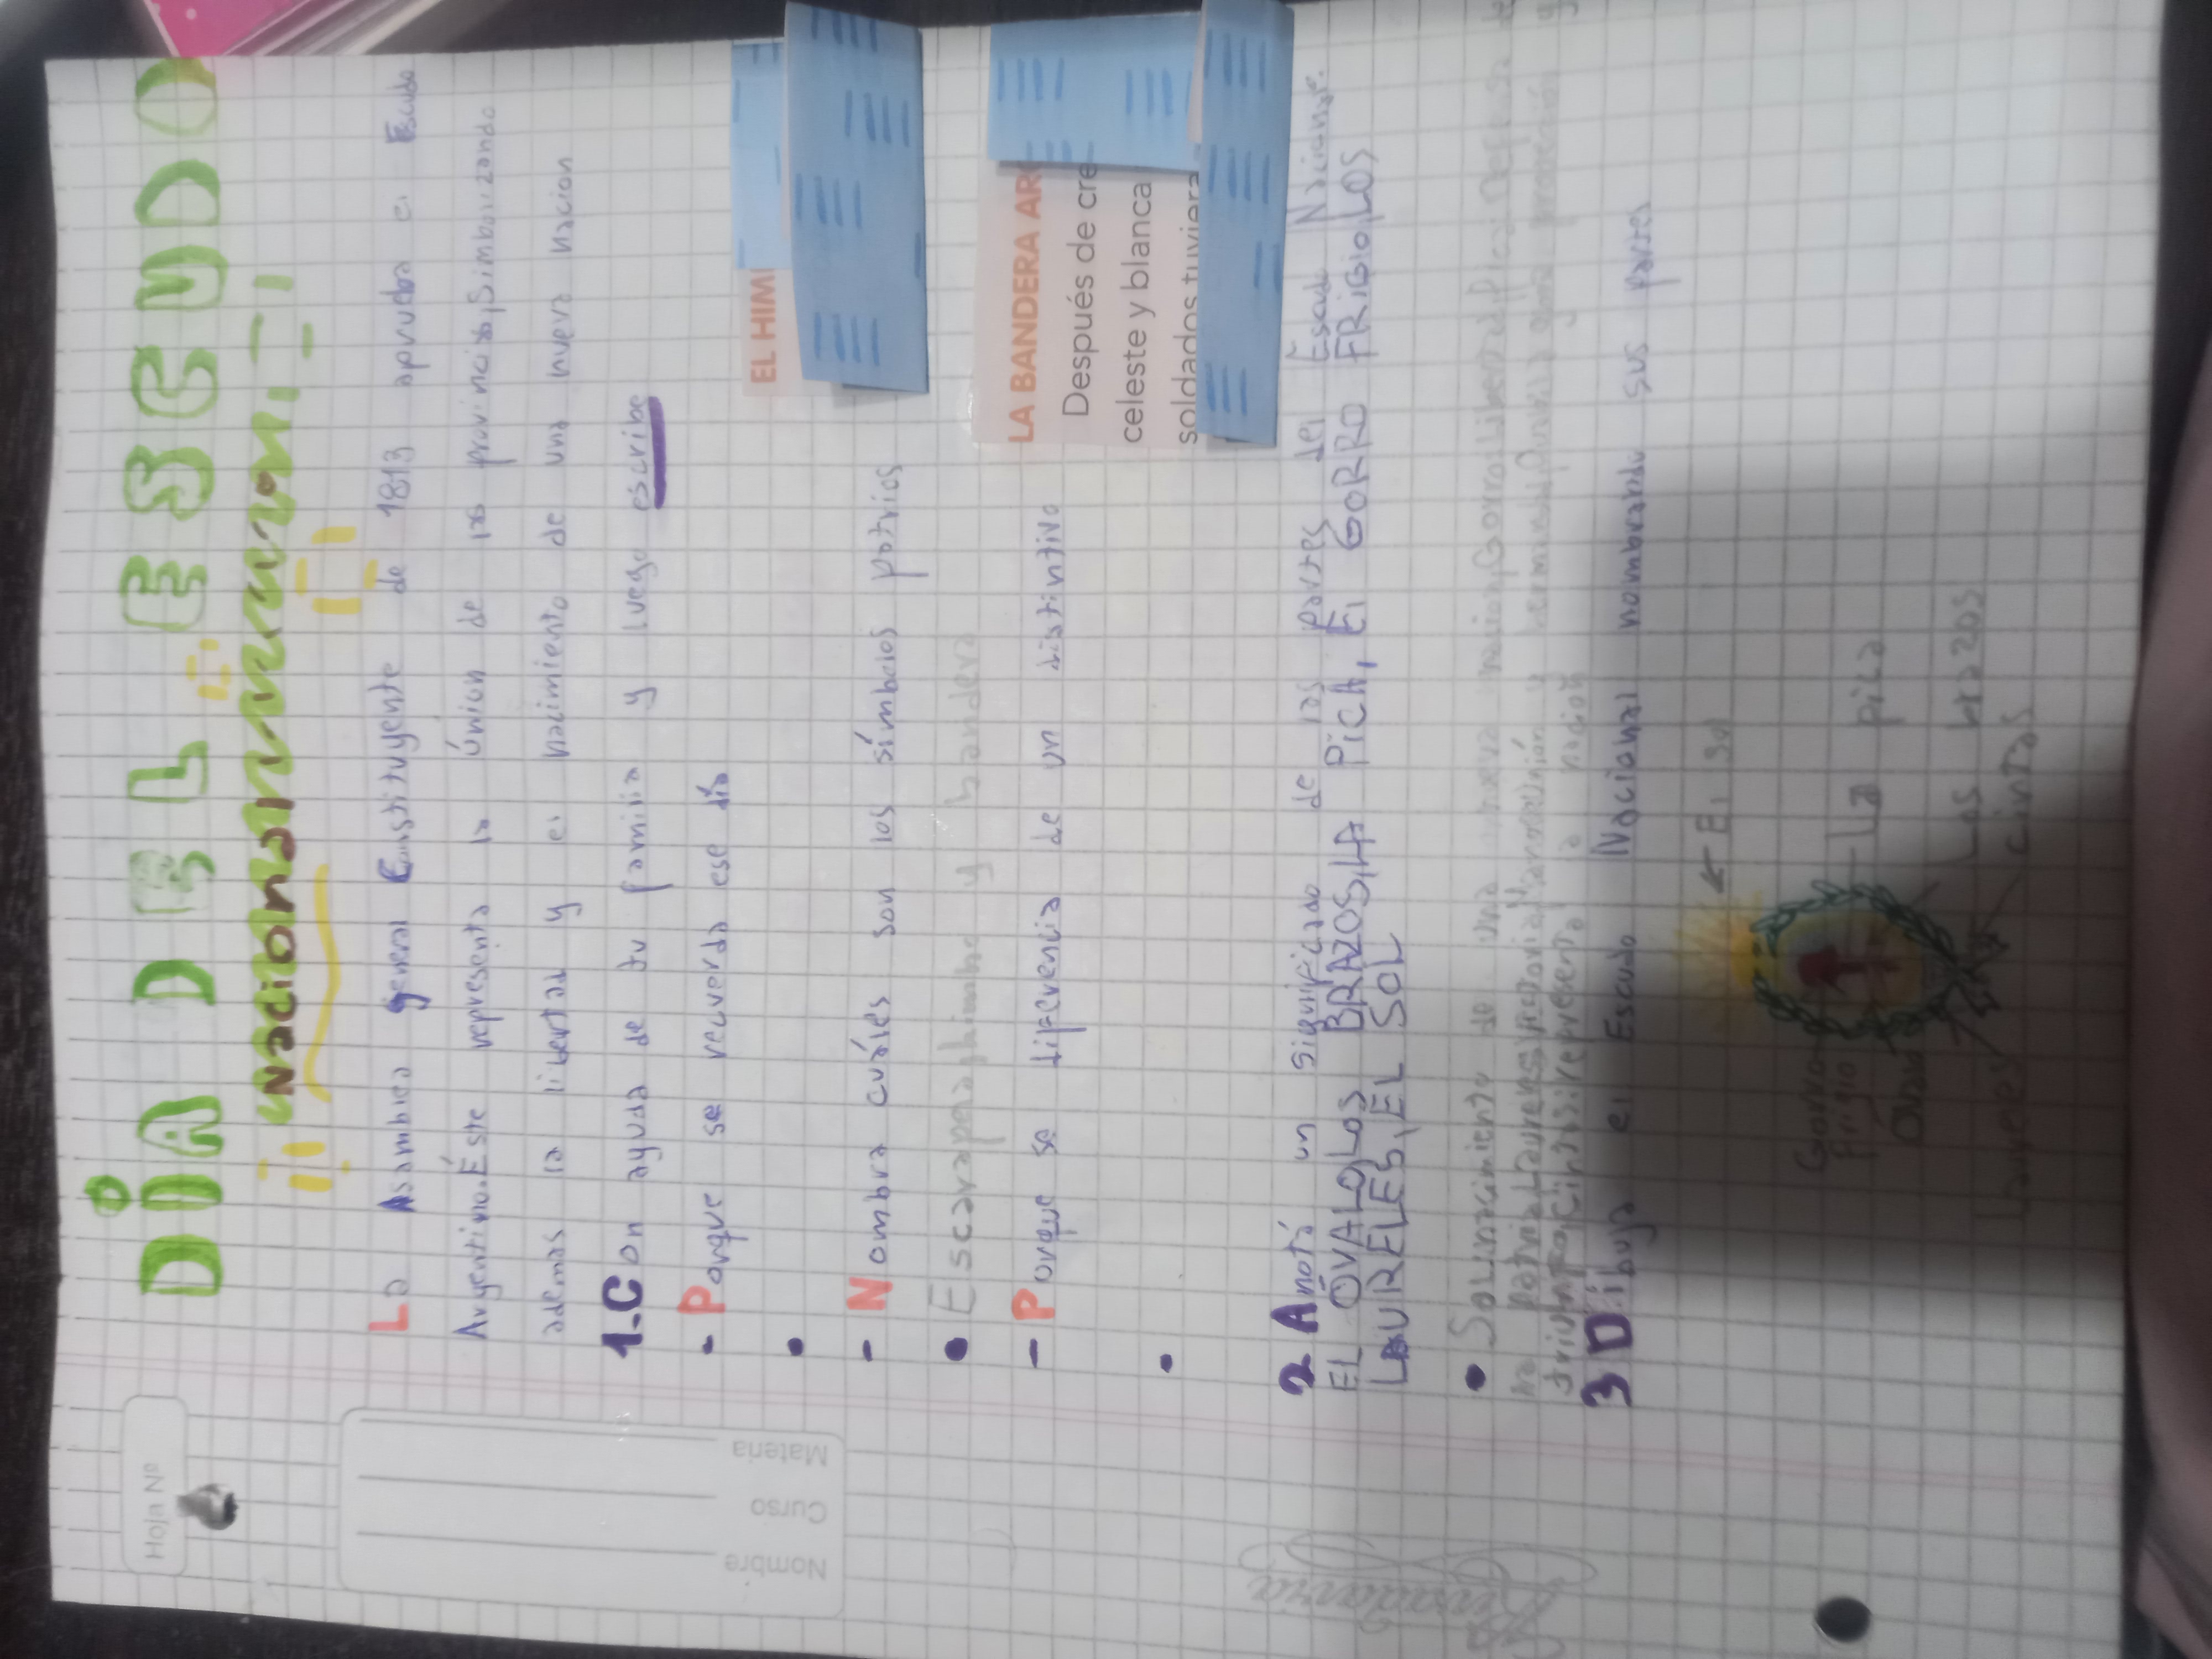 DÍA DEL ESCUDO
Nacional
La Asamblea general Constituyente de 1813 aprueba el Escudo
Argentino.Éste representa la Únion de las provincias,Simbolizando
ademas la libertad y el nacimiento de una nueva nacion
1.Con ayuda de tu familia y luego escribe
- Porque se recuerda ese día
- Nombra cuáles son los símbolos patrios
• Escarapela, himno y bandera
- Porque se diferencia de un distintivo
EL HIM
LA BANDERA AR
Después de cre
celeste y blanca
soldados tuviera
2 Anotá un significado de las partes del Escudo Nacional.
EL ÓVALO,LOS BRAZOS,LA PICA, El GORRO FRIGIO,LOS
LAURELES,EL SOL
• Sol:nacimiento de una nueva nacion,Gorro:libertad,Pica:Defensa de
la patria,Laureles:victoria
triunfo,Cintas:representa la nación
3 Dibuja el Escudo Nacional nombrando sus partes
El sol
Gorro
Frigio
La pica
Óvalo
Los brazos
Laureles
cintas
Hoja Nº
Nombre
Curso
Materia
Rivadavia